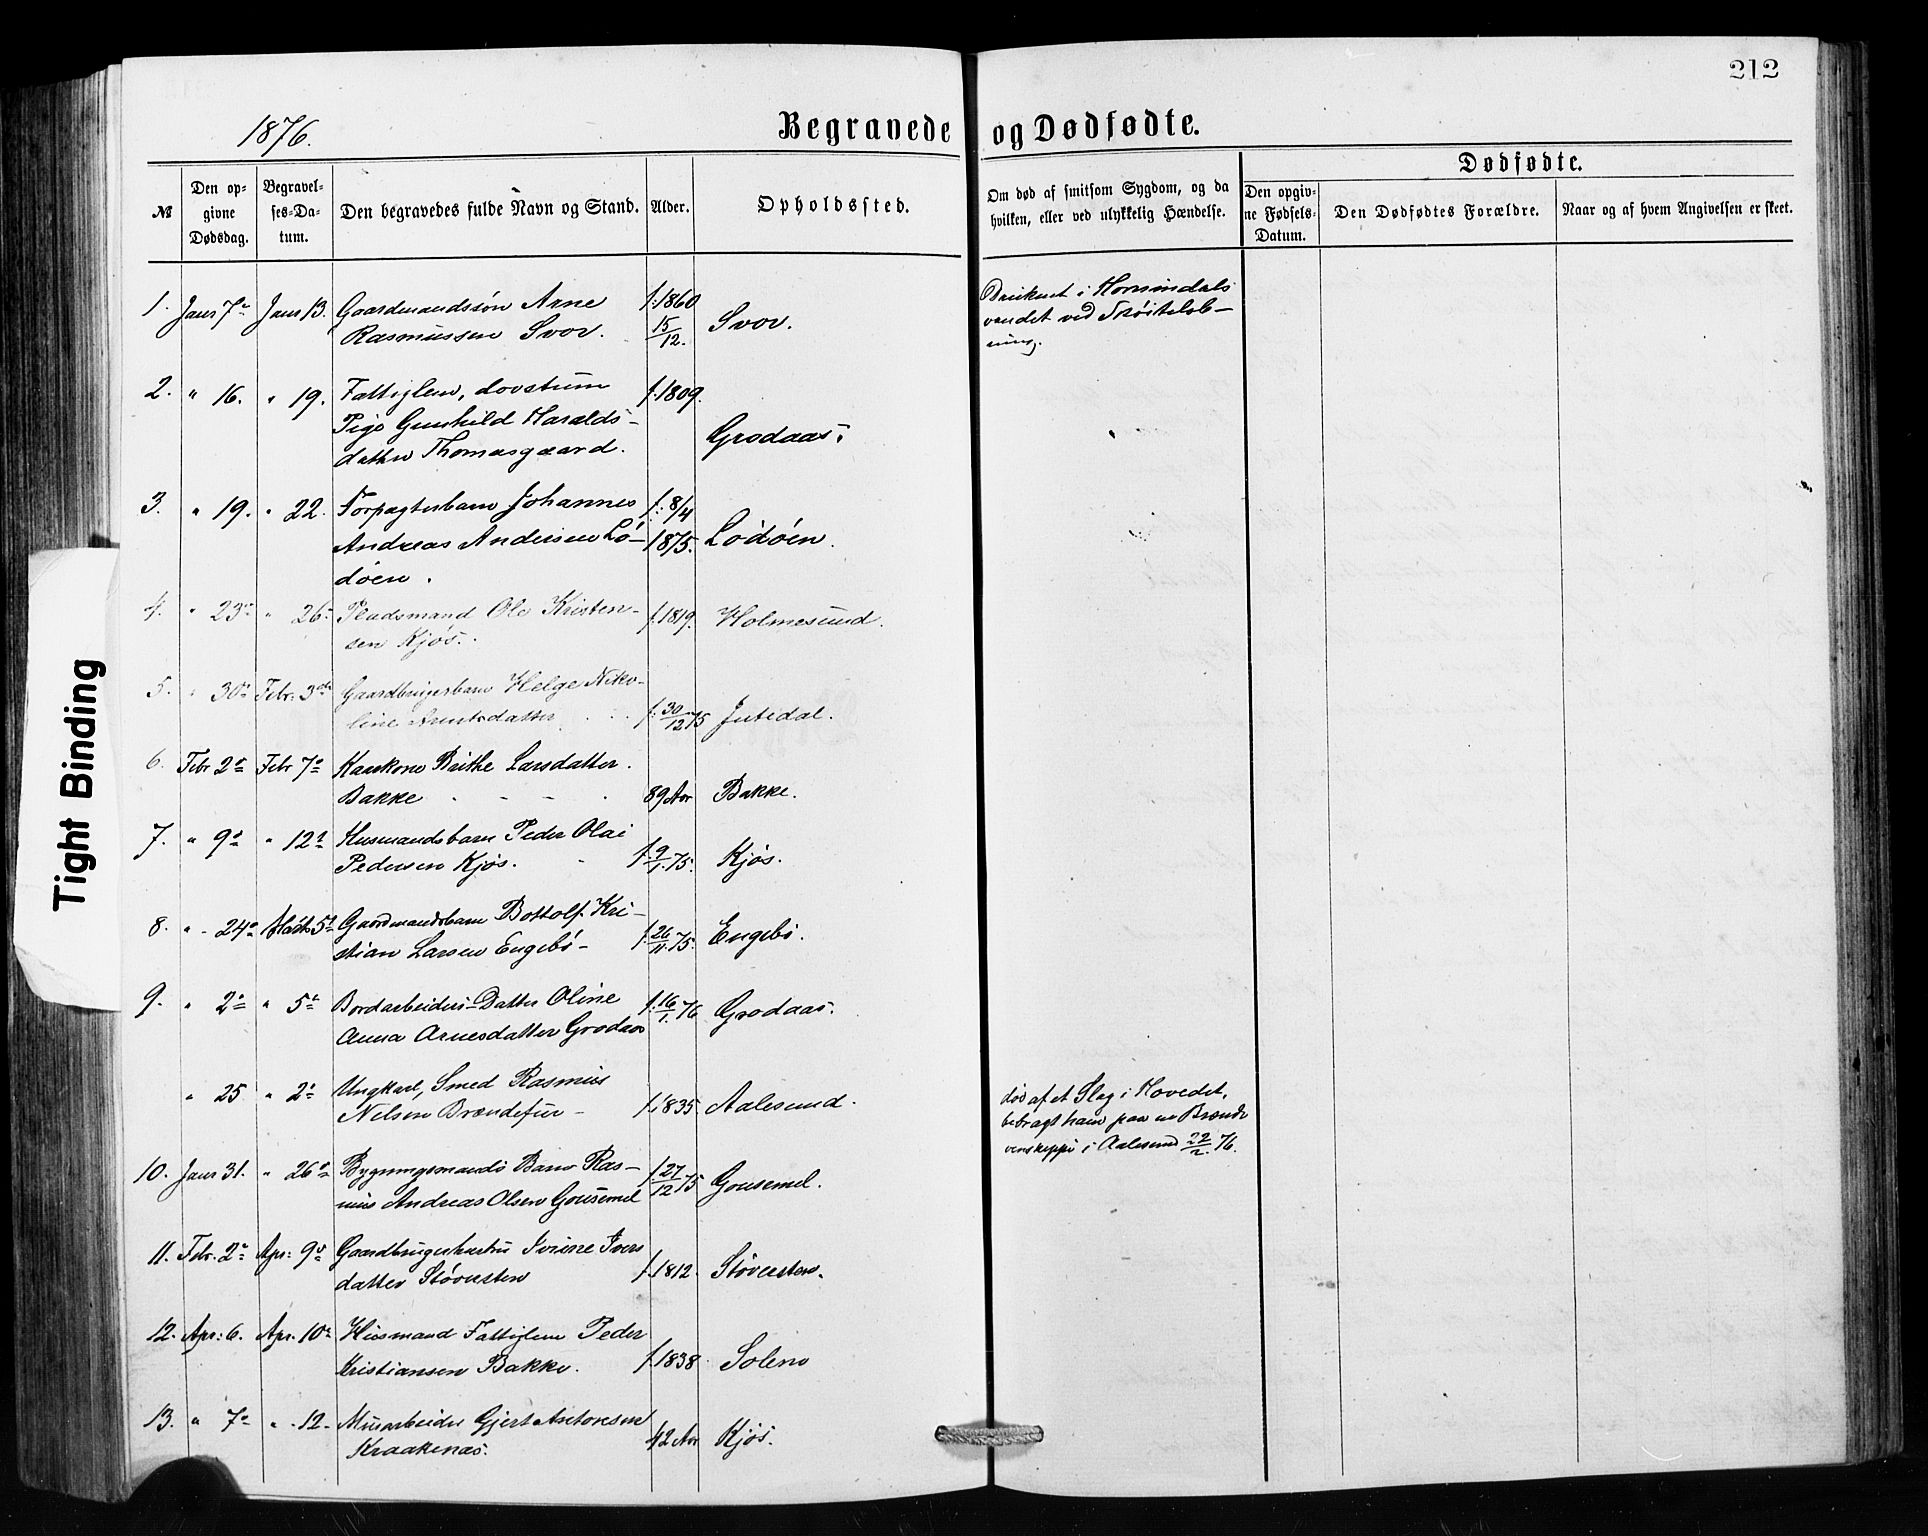 212
1876.
Begravede og Dødfødte.
Dødfødte.
№
Den op-
givne
Dødsdag.
Begravel-
ses-Da-
tum.
Den begravedes fulde Navn og Stand.
Alder.
Opholdssted.
Om død af smitsom Sygdom, og da
hvilken, eller ved ulykkelig Hændelse.
Den opgiv-
ne Fødsels-
Datum.
Den Dødfødtes Forældre.
Naar og af hvem Angivelsen er skeet.
1. Janr 7de Janr 13. Gaardmandssøn Arne f. 1860
Rasmussen Svor. 15/12. Svor.
Druknet i Hornindals
vandet ved Skøiteløb-
ning.
2. " 16. " 19. Fattiglem, døvstum f. 1809.
Pige Gunhild Haralds-
datter Thomasgaard. Grodaas.
3. " 19. " 22. Forpagterbarn Johannes f. 8/4
Andreas Andersen Lö- 1875. Lödöen.
döen.
4. " 23de " 26. Pladsmand Ole Kristen- f. 1819. Holmesund.
sen Kjøs.
5. " 30te Febr. 3die Gaardbrugerbarn Helge Niko-
line Arntsdatter f. 30/12 75 Jutedal.
6. Febr 2den Febr 7de Kaarkone Brithe Larsdatter.
Bakke 89 Aar Bakke.
7. " 9de " 12te Husmandsbarn Peder Olai
Pedersen Kjøs. f. 9/1. 75. Kjøs.
8. " 24de Marts 5te Gaardmandsbarn Bottolf Kri-
stian Larsen Engebö f. 26/11. 75. Engebö.
9. " 2den " 5te Bordarbeiders-Datter Oline f. 16/1. 76 Grodaas.
Anna Arnesdatter Grodaas
" 25 " 2den Ungkarl, Smed Rasmus
Nelsen Brændefur f. 1835 Aalesund.
død af et Slag i Hovedet,
bibragt ham paa en Brænde
vinskippe i Aalesund 22/2. 76.
10. Janr 31. " 26de Bygningsmands Barn Ras-
mus Andreas Olsen Gousemel f. 27/12 75 Gousemel.
11. Febr. 2den Apr: 9de Gaardbrugerhustru Ivers
datter Støversten f. 1812. Støversten.
12. Apr: 6. Apr. 10de Husmand Fattiglem Peder
Kristiansen Bakke. f. 1838. Solem
13. " 7de " 12. Murarbeider Gjert Antonsen
Kraakenæs. 42 Aar Kjøs.
Tight Binding